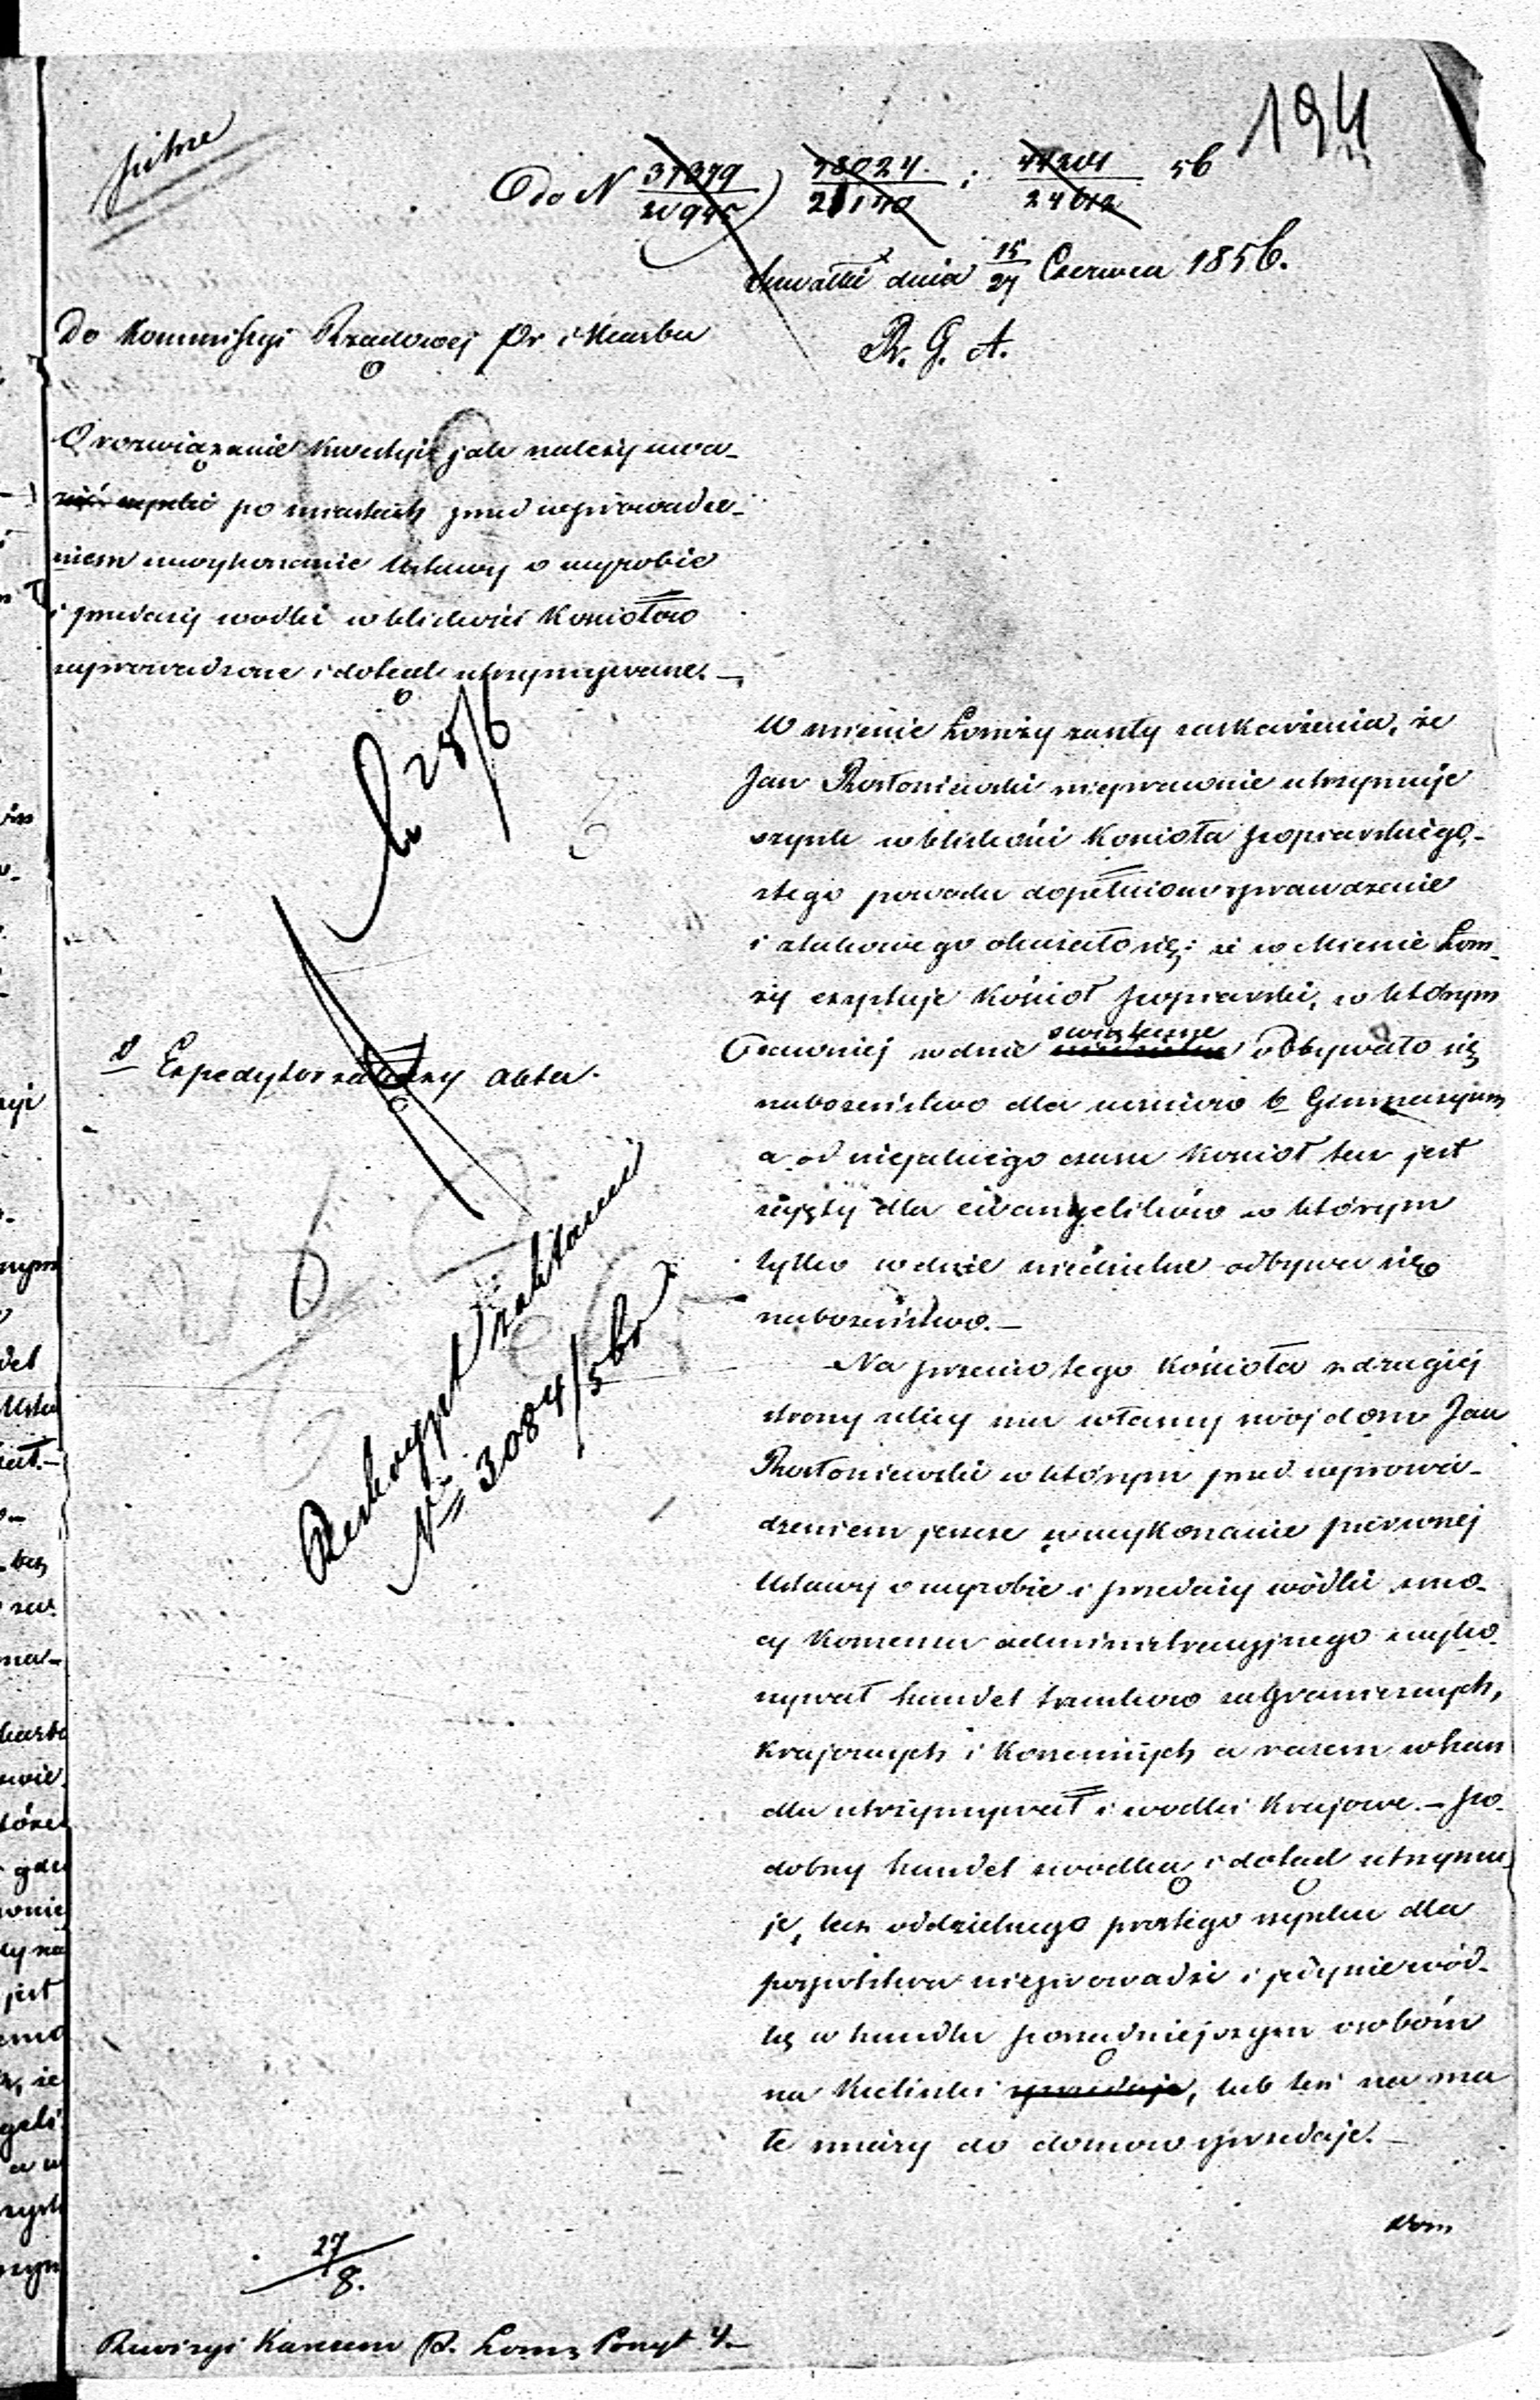 194
pilne
Do N 37379/20995) 38024/21140 i 44201/24612 56
Suwałki dnia 15/27 Czerwca 1856.
R. G. A.
Do Kommissyi Rządowej Pr. i Skarbu
O rozwiązanie kwestyi jak należy uwa-
żać szynki po miastach przed wprowadze-
niem w wykonanie Ustawy o wyrobie
i przedaży wódki w bliskości Kościołów
zaprowadzone i dotąd utrzymywane.
25/6
Expedytor załączy akta.
N 3084/56
W mieście Łomży zaszły zaskarżenia, że
Jan nieprawnie utrzymuje
szynk w bliskości Kościoła popiarskiego,
z tego powodu dopełniono sprawdzenie
i z takowego okazało się: że w Mieście Łom-
ży exystuje Kościół popiarski, w którym
dawniej w dnie świąteczne odbywało się
nabożeństwo dla uczniów b. Gimnazyum
a od niejakiego czasu Kościół ten jest
zajęty dla ewangelików w którym
tylko w dnie niedzielne odbywa się
nabożeństwo.
Na przeciw tego Kościoła z drugiej
strony ulicy ma własny swój dom Jan
w którym przed wprowa-
dzeniem jeszcze w wykonanie pierwszej
Ustawy o wyrobie i przedaży wódki z mo-
cy Konsensu administracyjnego wyko-
nywał handel trunków zagranicznych,
krajowych i korzennych a razem w han
dlu utrzymywał i wódki Krajowe. – Po-
dobny handel z wódką i dotąd utrzymu-
je, lecz oddzielnego prostego szynku dla
pospólstwa nieprowadzi i jedynie wód-
kę w handlu porządniejszym osobom
na Kieliszki sprzedaje, lub też na ma
łe miary do domów sprzedaje.
Dom
27/8.
Rewizyi Konsens P. Łomz. Poszyt 4.